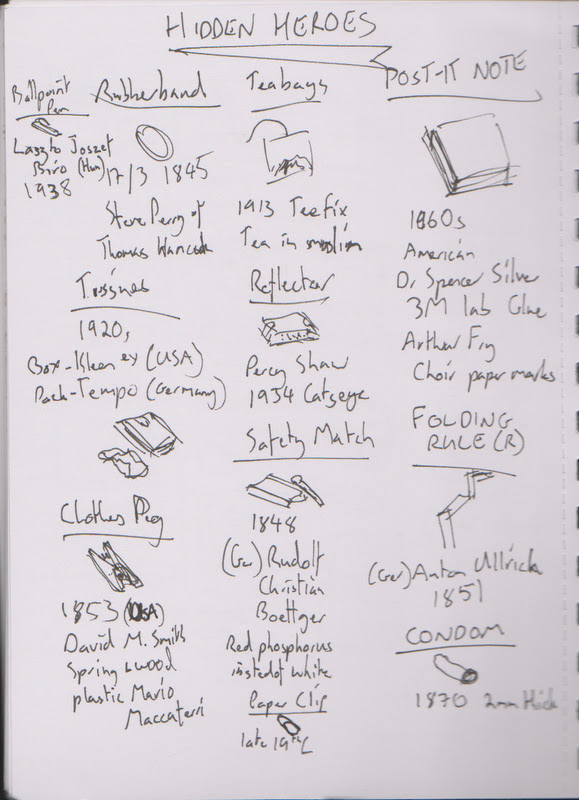 HIDDEN HEROES
Ballpoint
Pen
Laszlo Joszef
Biro (Hun)
1938
Rubberband
17/3 1845
Steve Perry of
Thomas Hancock
Tissues
1920s
Box-Kleenex (USA)
Pack-Tempo (Germany)
Clothes Peg
1853 (USA)
David M. Smith
Spring & wood
plastic Mario
Maccaferri
Teabags
1913 Teefix
Tea in muslin
Reflector
Percy Shaw
1934 Catseye
Safety Match
1848
(Ger) Rudolf
Christian
Boettger
Red phosphorus
insted of white
Paper Clip
late 19th C
POST-IT NOTE
1960s
American
Dr Spencer Silver
3M lab Glue
Arthur Fry
Choir paper marks
FOLDING
RULE (R)
(Ger) Anton Ullrich
1851
CONDOM
1870 2mm thick